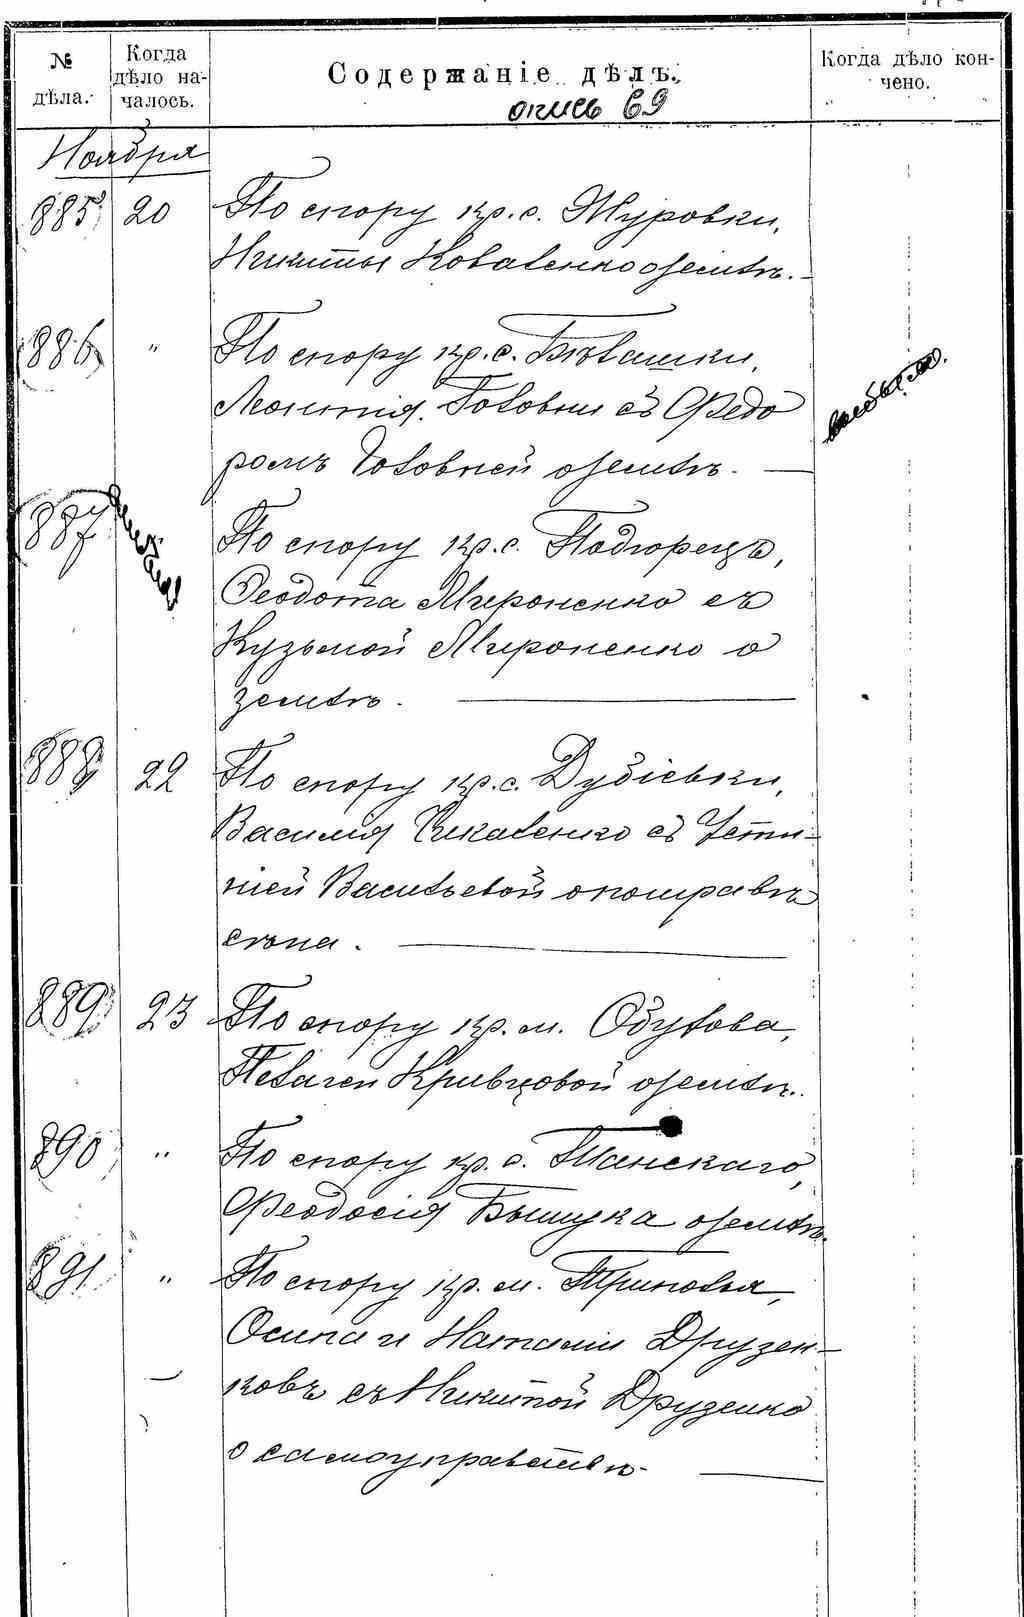 № дѣла.
Когда дѣло началось.
Содержаніе дѣлъ.
Когда дѣло кончено.
опись 69
Ноября
885 20 По спору кр. с. Журовки,
Никиты Коваленко о землѣ.
886 " По спору кр. с. Бѣлашки,
Леонтія Головни съ Федо
ромъ Головней о землѣ.
887 По спору кр. с. Подгорецъ,
Феодота Мироненко съ
Кузьмой Мироненко о
землѣ.
888 22 По спору кр. с. Дубіевки,
Василия Чикаленко съ Усти-
ніей Васильевой о потравѣ
сѣна.
889 23 По спору кр. м. Обухова,
Пелагеи Кривцовой о землѣ.
890 " По спору кр. с. Танскаго,
Феодосія Бышука о землѣ.
891 " По спору кр. м. Триполья,
Осипа и Наталіи Друзен-
ковъ съ Никитой Друзенко
о самоуправствѣ.